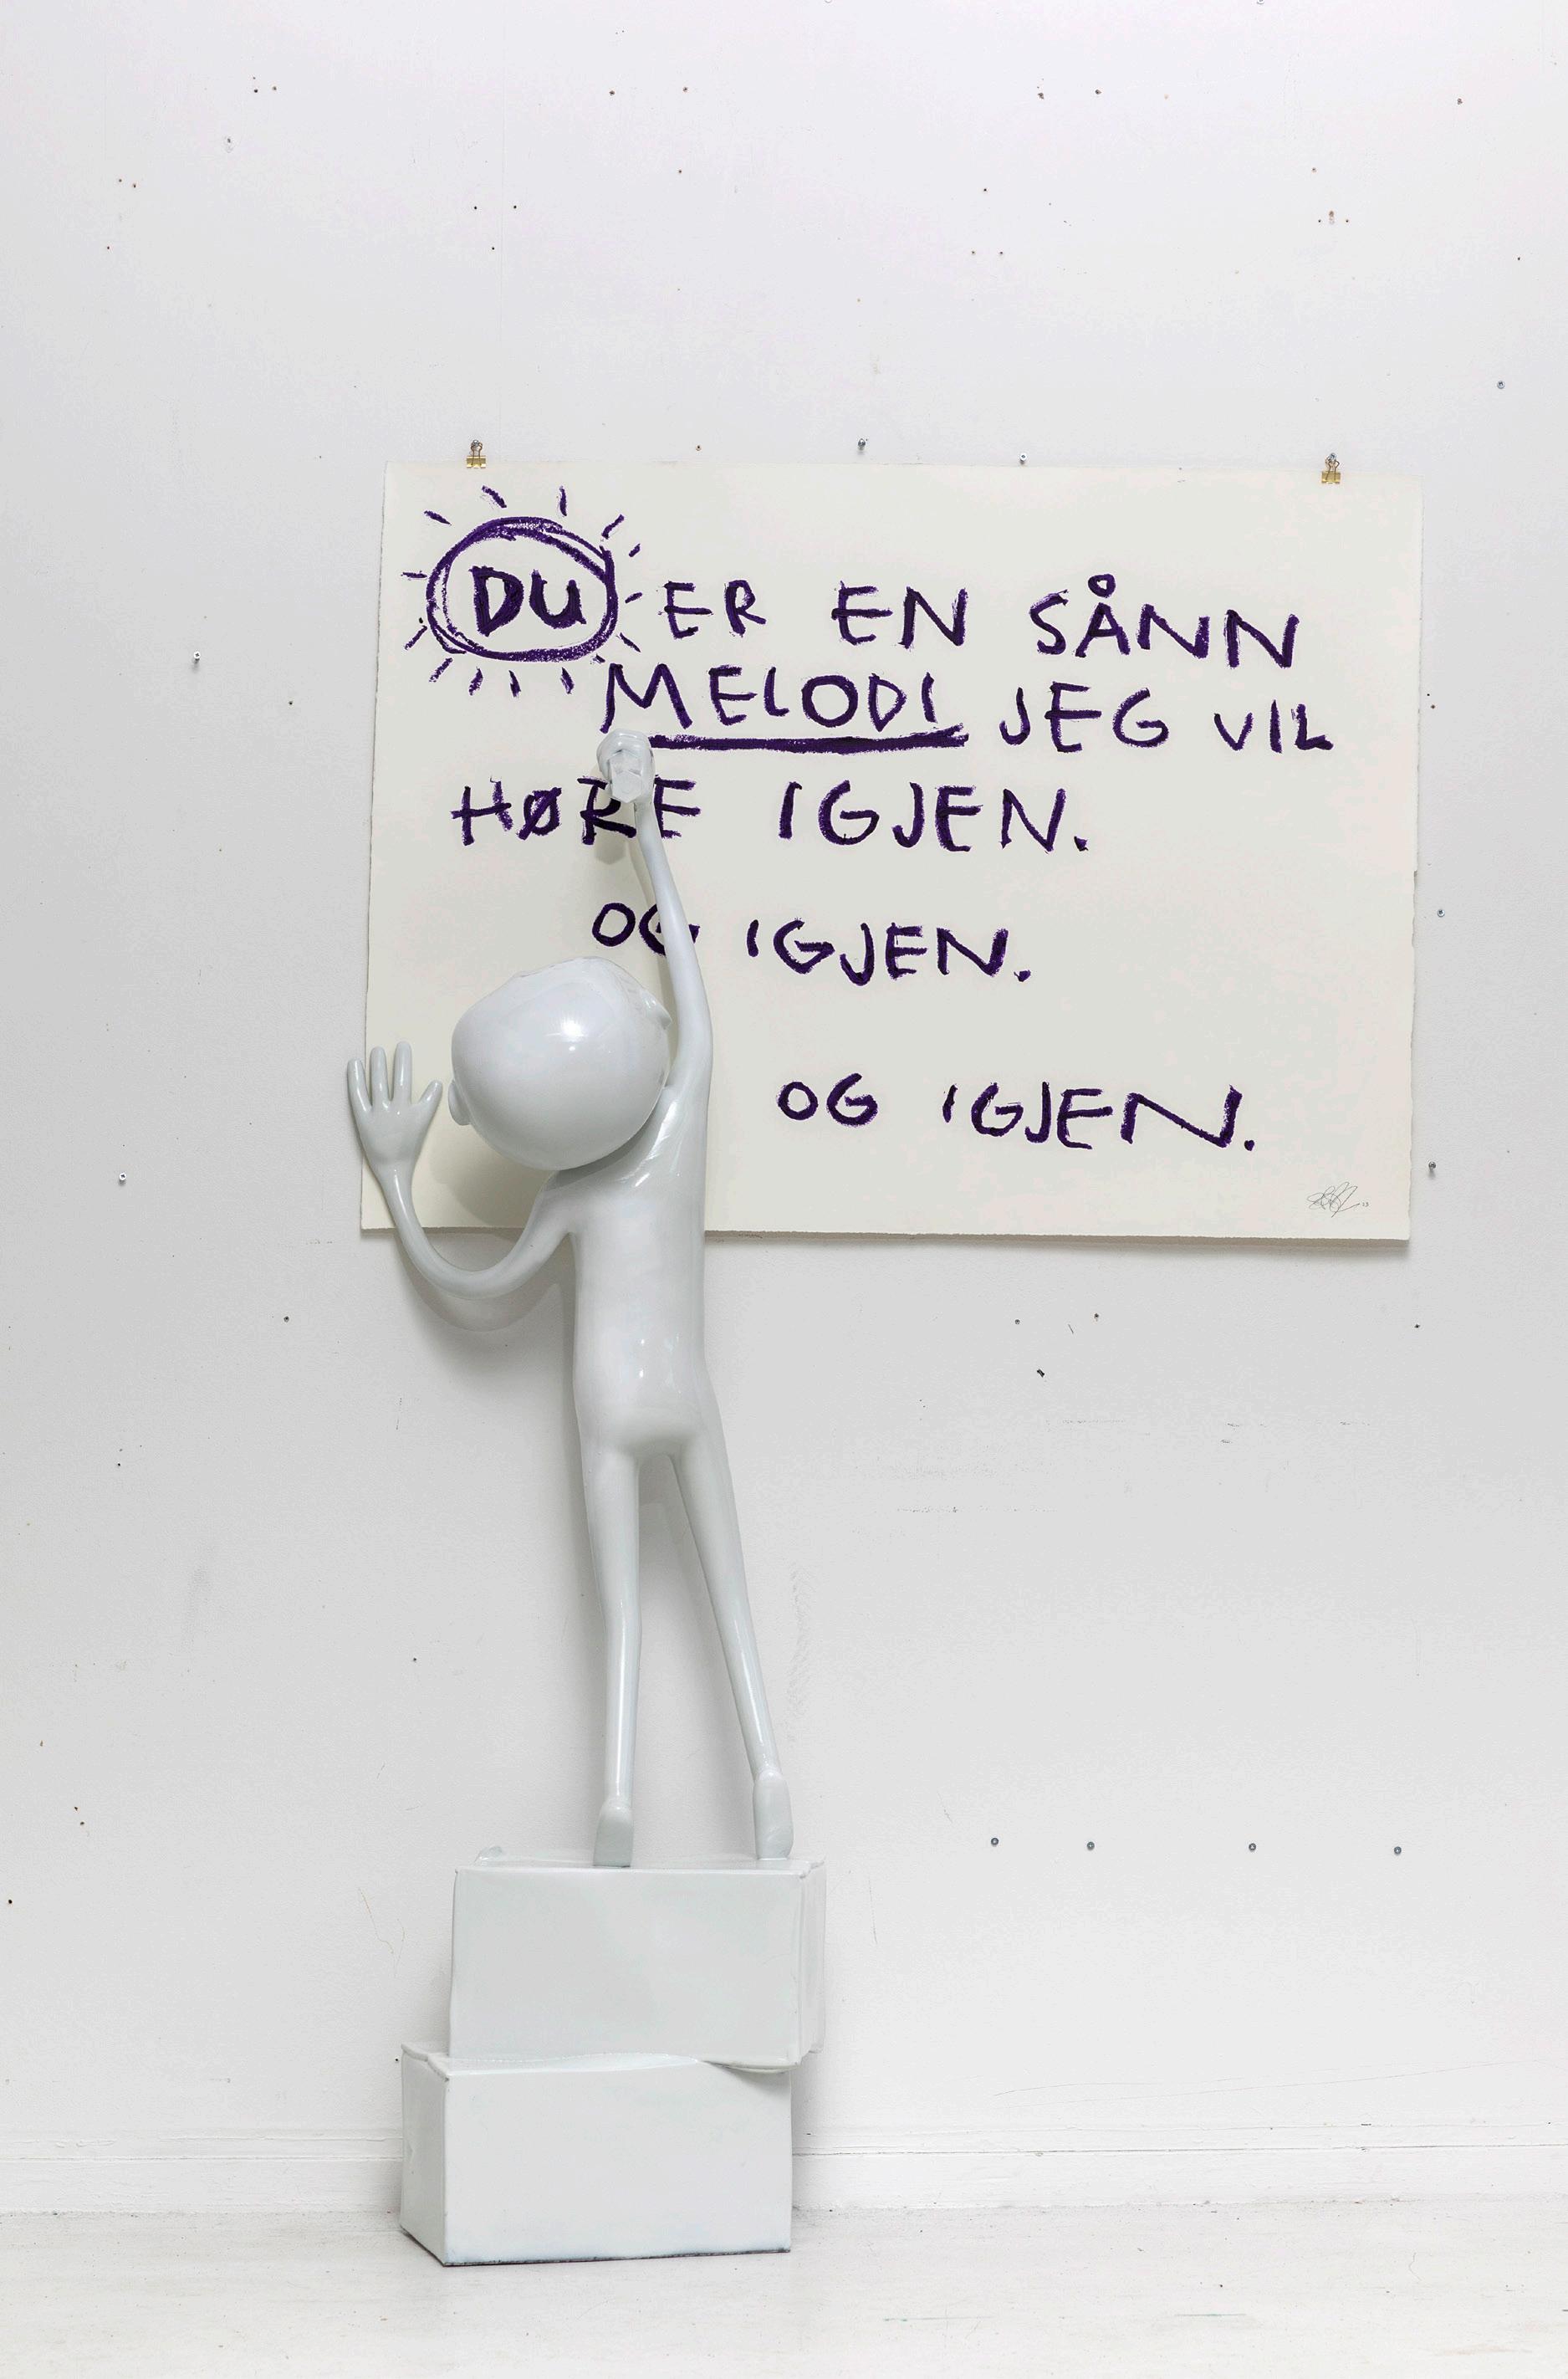 DU ER EN SÅNN
MELODI JEG VIL
HØRE IGJEN.
OG IGJEN.
OG IGJEN.